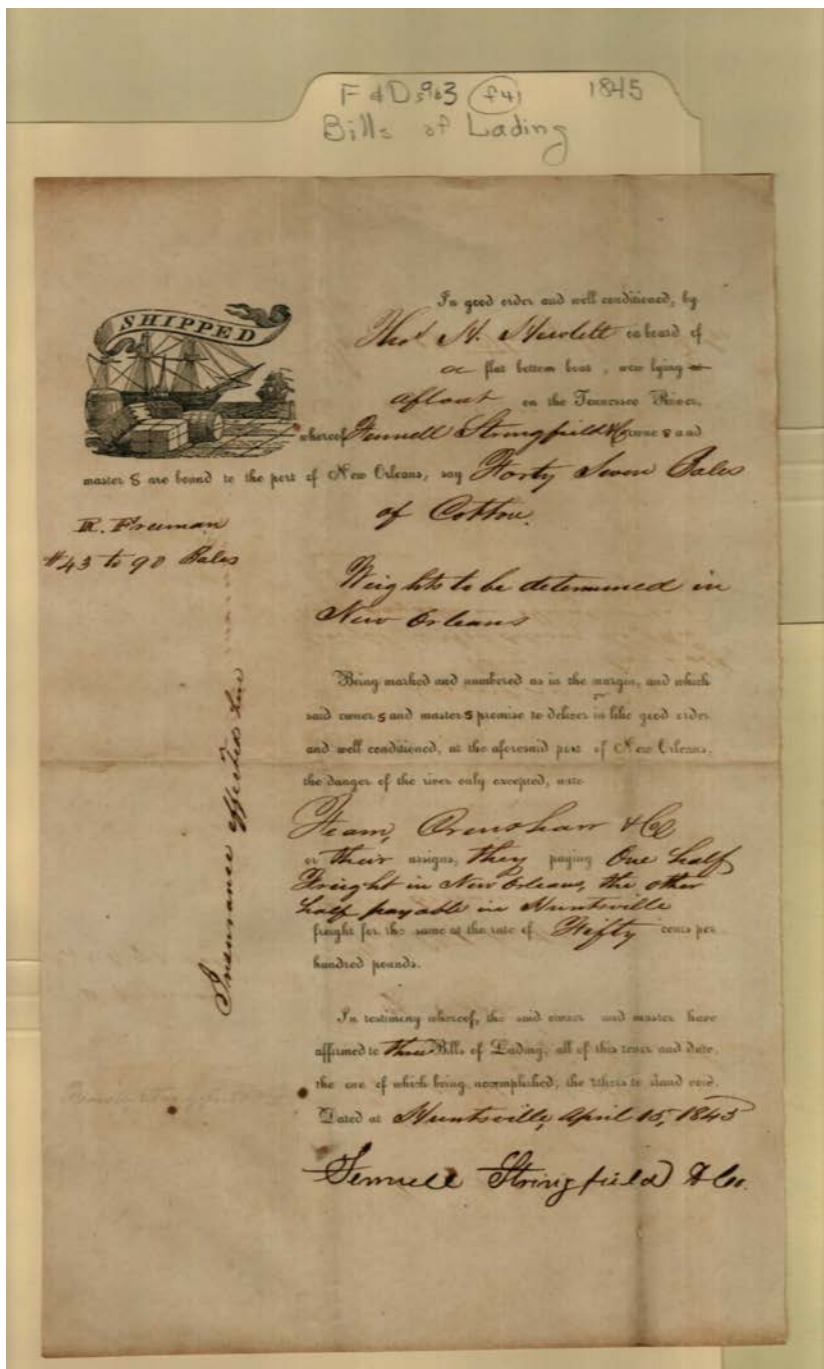 F & D 963 (f4) 1845
Bills of Lading
SHIPPED
In good order and well conditioned, by
Thos H. Hewlett on board of
a flat bottom boat, now lying at
afloat on the Tennessee River,
whereof Fennell Stringfield & Co owners and
masters are bound to the port of New Orleans, say Forty Seven Bales
of Cotton.
R. Freeman
#43 to 90 Bales
Weights to be determined in
New Orleans
Being marked and numbered as in the margin, and which
said owners and masters promise to deliver in like good order
and well conditioned, at the aforesaid port of New Orleans,
the danger of the river only excepted, unto
Crenshaw & Co
or their assigns, they paying One half
Freight in New Orleans, the other
half payable in Huntsville
freight for the same at the rate of Fifty cents per
hundred pounds.
Insurance effected
In testimony whereof, the said owner and master have
affirmed to three Bills of Lading, all of this tenor and date,
the one of which being accomplished, the others to stand void.
Dated at Huntsville, April 15, 1845
Fennell Stringfield & Co.